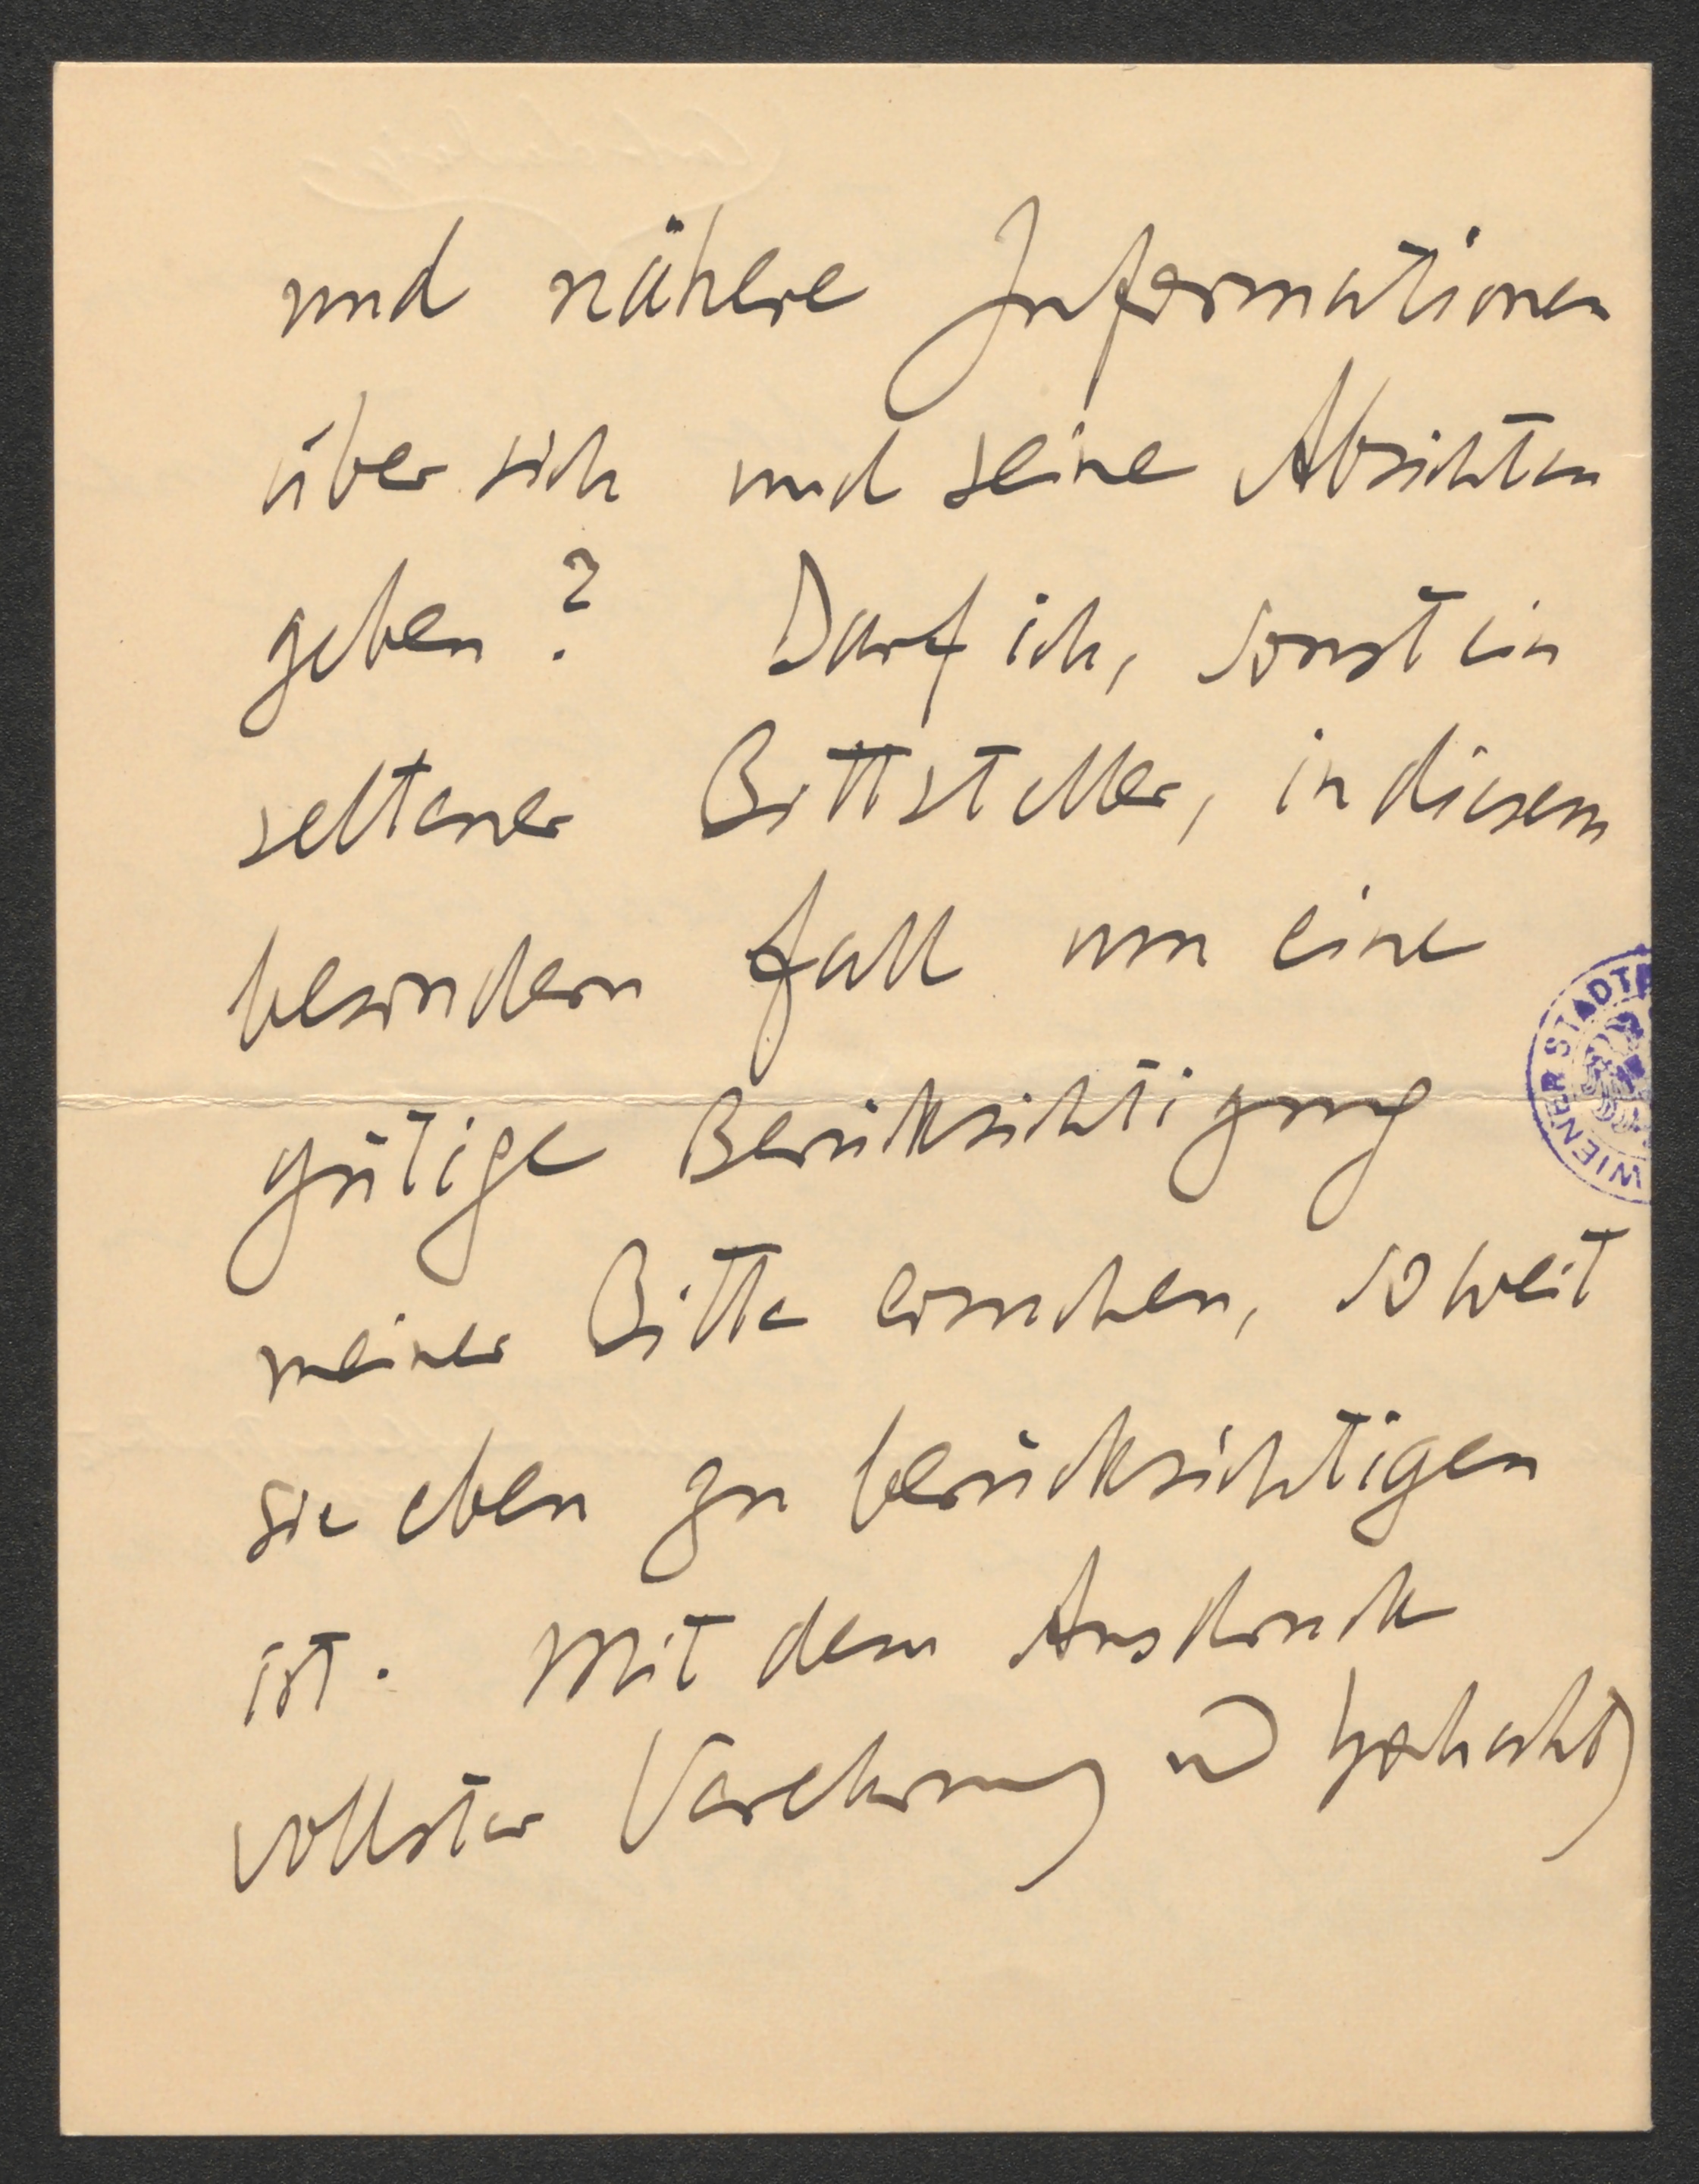 und nähere Informationen
über sich und seine Absichten
geben? Darf ich, sonst ein
seltener Bittsteller, in diesem
besondern Fall um eine
gütige Berücksichtigung
meiner Bitte ersuchen, soweit
sie eben zu berücksichtigen
ist. Mit dem Ausdruck
vollster Verehrung u Hochacht
WIENER STADT